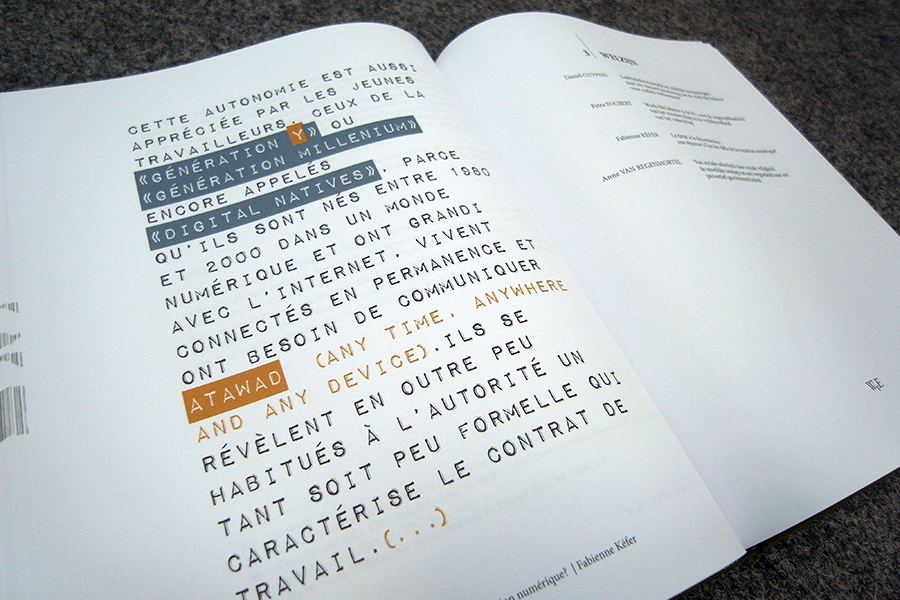 CETTE AUTONOMIE EST AUSSI
APPRÉCIÉE PAR LES JEUNES
TRAVAILLEURS, CEUX DE LA
«GÉNÉRATION Y» OU
«GÉNÉRATION MILLENIUM»
ENCORE APPELÉS
«DIGITAL NATIVES», PARCE
QU'ILS SONT NÉS ENTRE 1980
ET 2000 DANS UN MONDE
NUMÉRIQUE ET ONT GRANDI
AVEC L'INTERNET, VIVENT
CONNECTÉS EN PERMANENCE ET
ONT BESOIN DE COMMUNIQUER
ATAWAD (ANY TIME, ANYWHERE
AND ANY DEVICE).ILS SE
RÉVÈLENT EN OUTRE PEU
HABITUÉS À L'AUTORITÉ UN
TANT SOIT PEU FORMELLE QUI
CARACTÉRISE LE CONTRAT DE
TRAVAIL.(...)
numérique? | Fabienne Kéfer
3 WELZIJN
Daniël CUYPERS
Petra FOUBERT
Fabienne KÉFER
Anne VAN REGENMORTEL